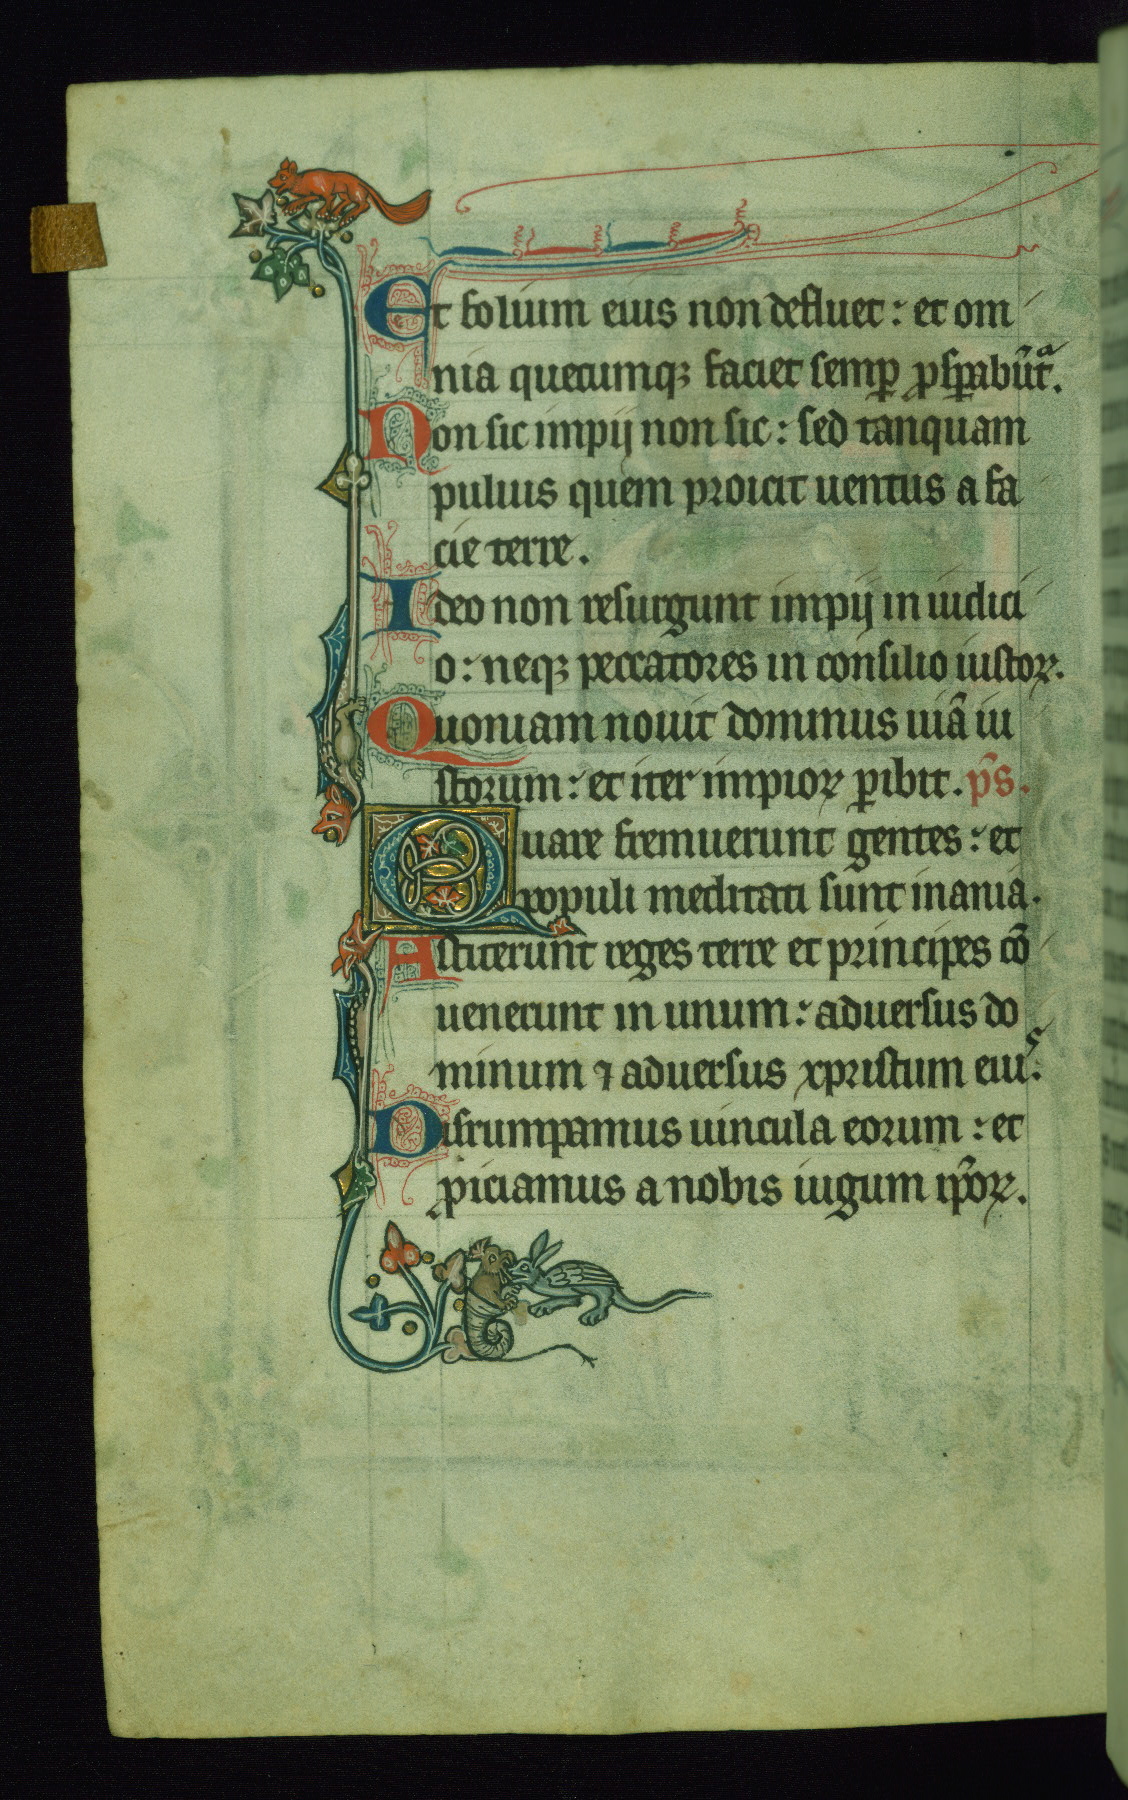 Et folium eius non defluet : et om
nia quecumqꝫ faciet semꝑ ꝓsꝑabūtᵃ.
Non sic impij non sic : sed tanquam
puluis quem proicit uentus a fa
cie terre.
Ideo non resurgunt impij in iudici
o : neqꝫ peccatores in consilio iustoꝝ.
Quoniam nouit dominus uiā iu
storum : et iter impioꝝ ꝑibit. p̄s.
Quare fremuerunt gentes : et
populi meditati sunt inania.
Astiterunt reges terre et principes cō
uenerunt in unum : aduersus do
minum ⁊ aduersus xpristum eiuˢ :
Disrumpamus uincula eorum : et
ꝓiciamus a nobis iugum ip̄oꝝ.